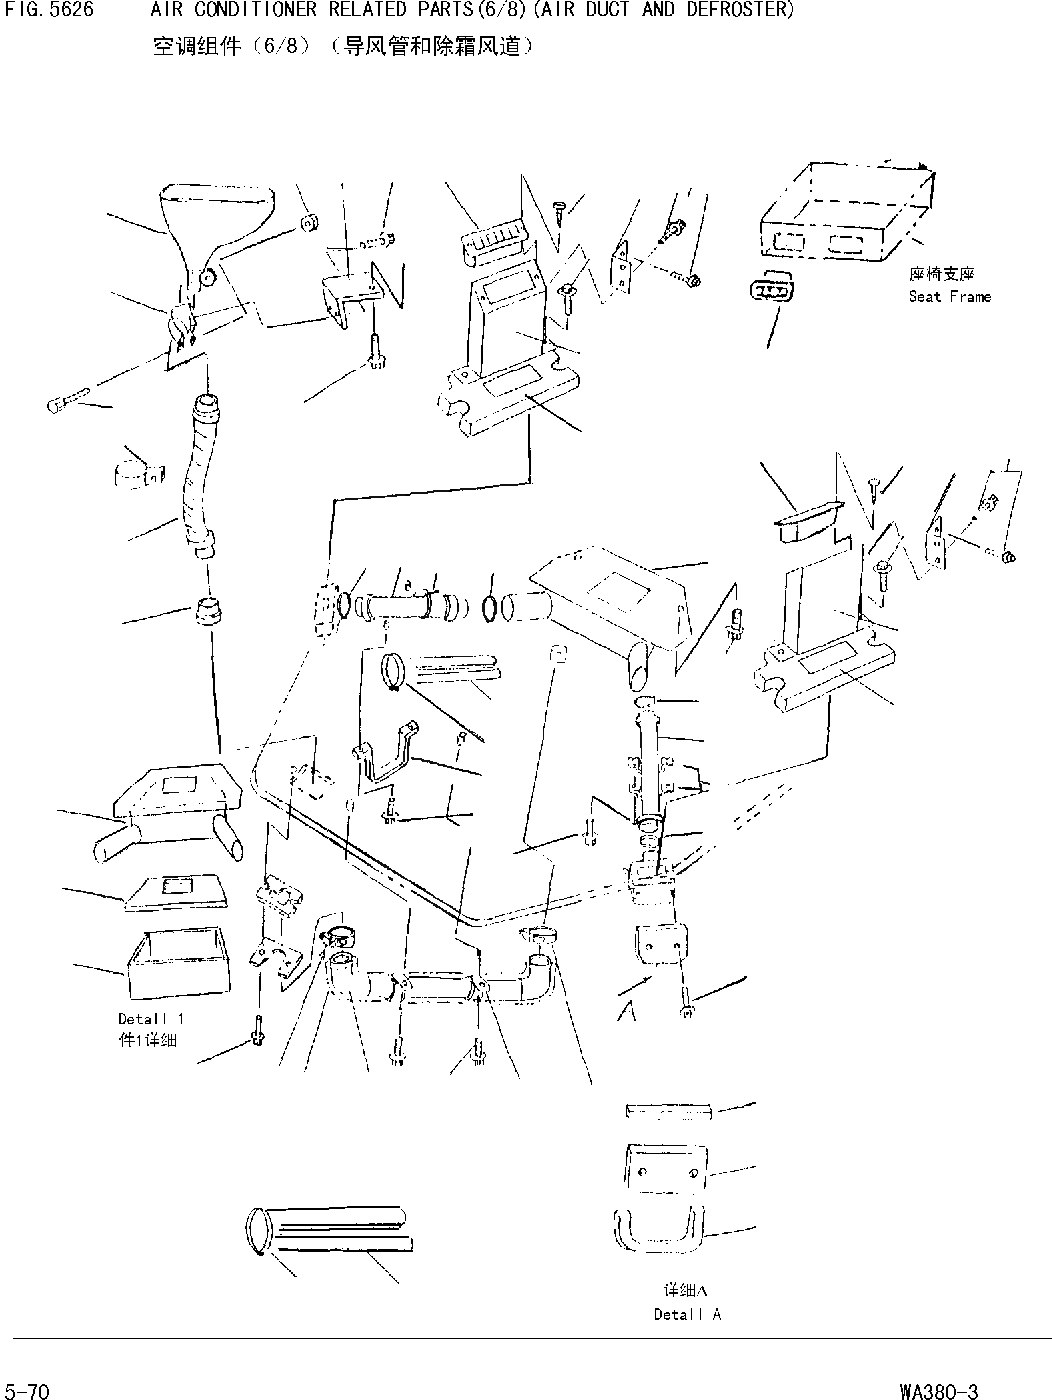 FIG.5626 AIR CONDITIONER RELATED PARTS(6/8)(AIR DUCT AND DEFROSTER)
空调组件（6/8）（导风管和除霜风道）
座椅支座
Seat Frame
Detall 1
件1详细
A
详细A
Detall A
5-70 WA380-3